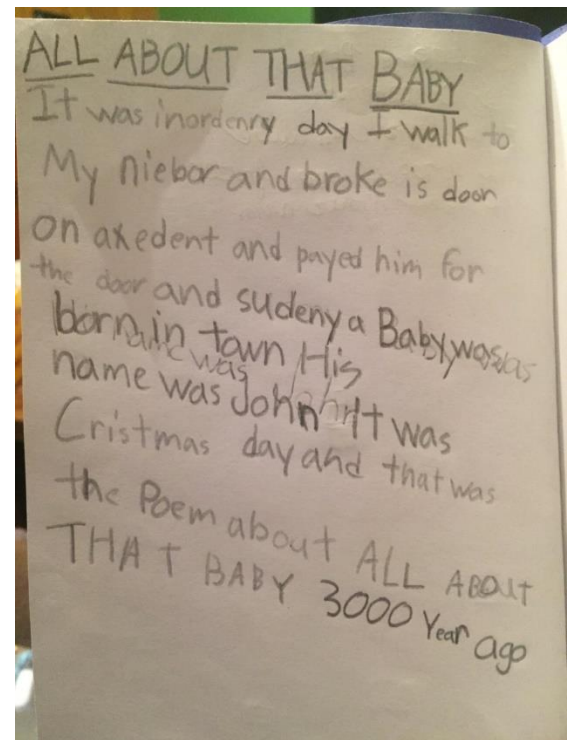 ALL ABOUT THAT BABY
It was inordenry day I walk to
My niebor and broke is door
on axedent and payed him for
the door and sudeny a Baby was
born in town His
name was John It was
Cristmas day and that was
the Poem about ALL ABOUT
THAT BABY 3000 Year ago